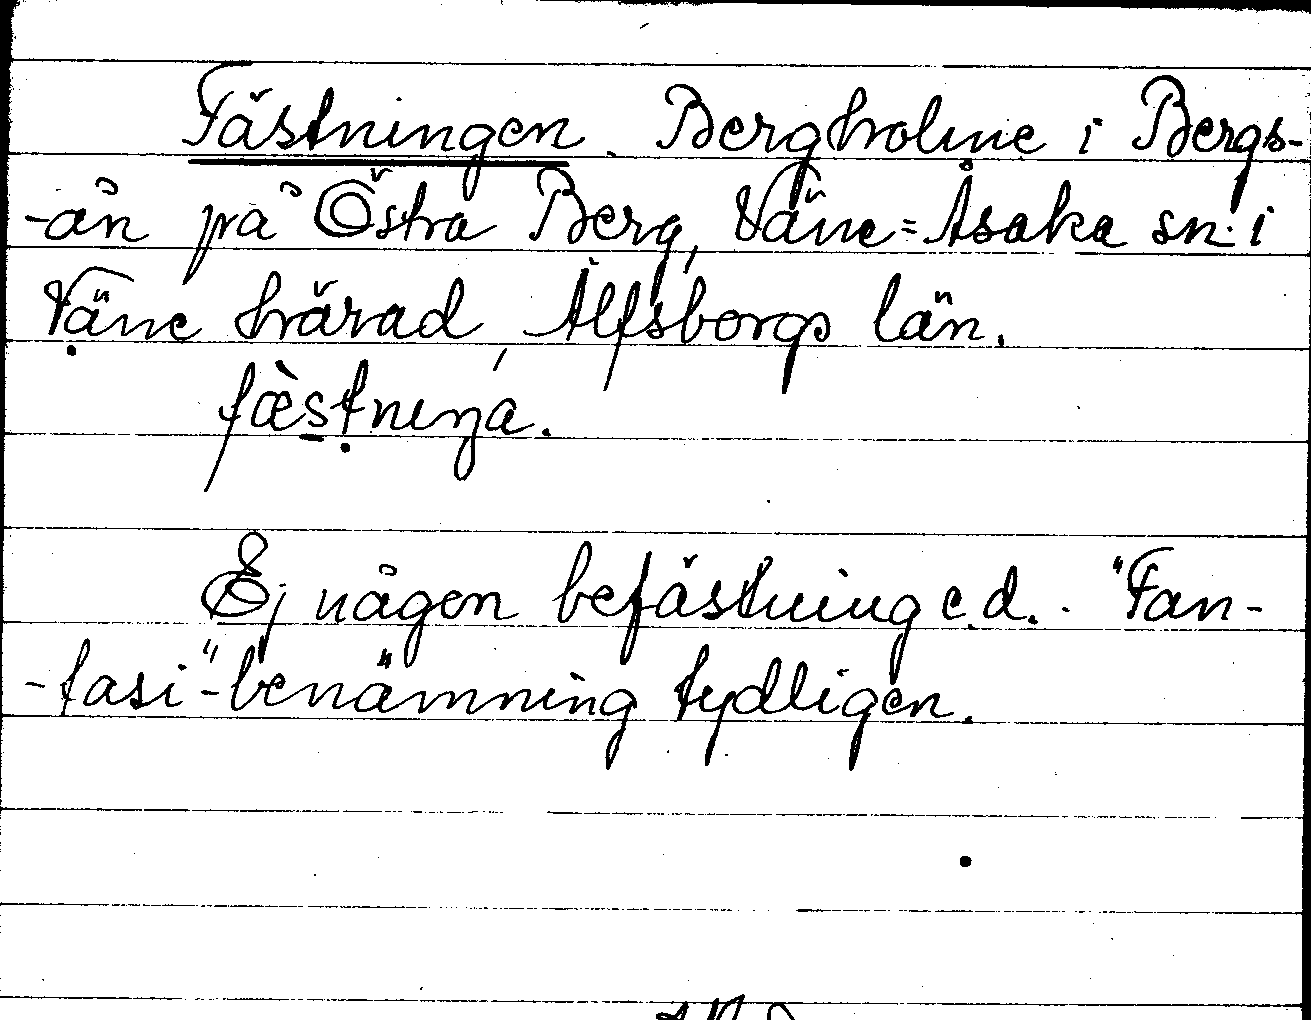 Fästningen. Bergholme i Bergs-
-ån på Östra Berg, Väne-Åsaka sn i
Väne härad, Älfsborgs län.
fæ̀stneŋa.
Ej någon befästning e.d. "Fan-
-tasi"-benämning tydligen.